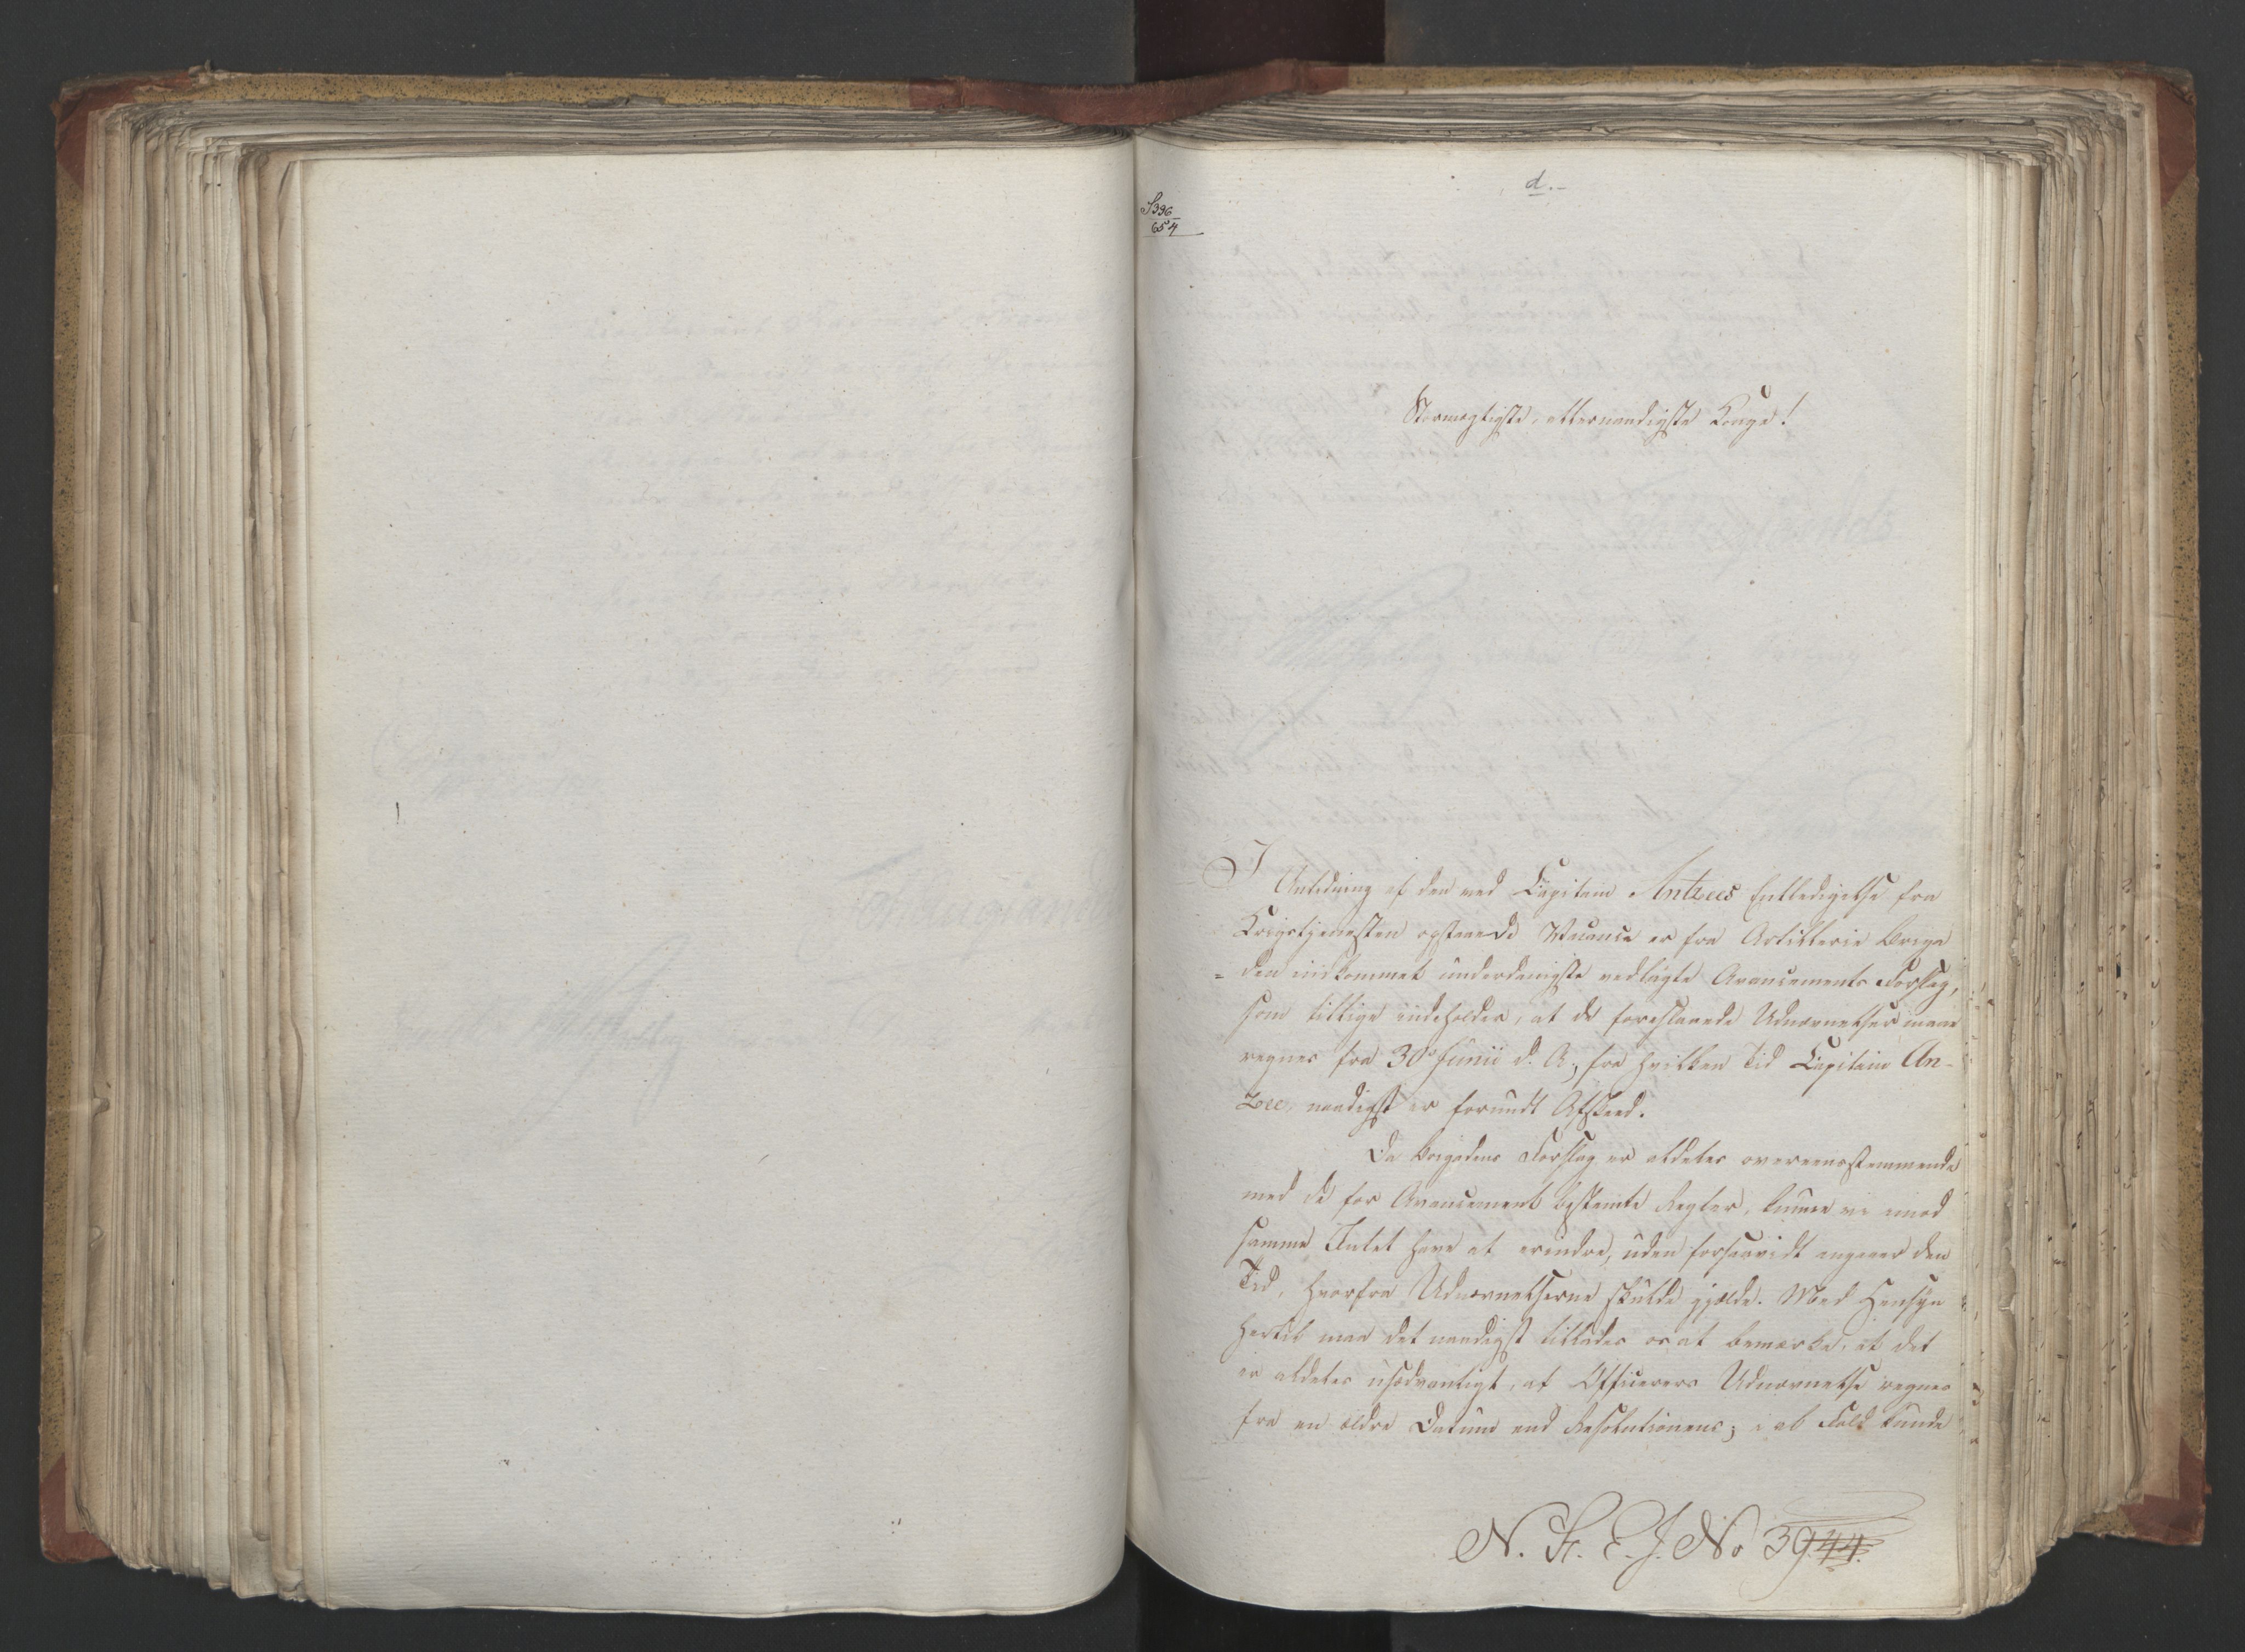 d.-
S 396
654
Stormægtigste, allernaadigste Konge!
I Anledning af den ved Capitain Antzees Entledigelse fra
Krigstjenesten opstaaede Vacance er fra Artillerie Briga
=den indkommet underdanigste vedlagte Avancements Forslag,
som tillige indeholder, at de foreslaaede Udnævnelser maae
regnes fra 30te Junii d. A., fra hvilken Tid Capitain An-
zee, naadigst er forundt Afskeed.
Da Brigadens Forslag er aldeles overeensstemmende
med de for Avancement bestemte Regler, kunne vi imod
samme Intet have at erindre, uden forsaavidt angaaer den
Tid, hvorfra Udnævnelserne skulde gjælde. Med Hensyn
hertil maa det naadigst tillades os at bemærke, at det
er aldeles usædvanligt, at Officerers Udnævnelse regnes
fra en ældre Datum end Resolutionens; i al Fald kunde
N. S. E. J. No 3944.